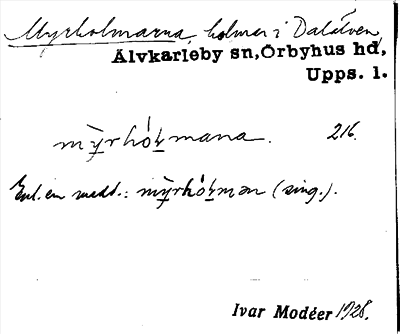 Myrholmarna, holmar i Dalälven,
Älvkarleby sn, Örbyhus hd,
Upps. l.
mỳrhó̱ɫmana. 216.
Enl. en medd.: mỳrhó̱ɫmən (sing.).
Ivar Modéer 1928.